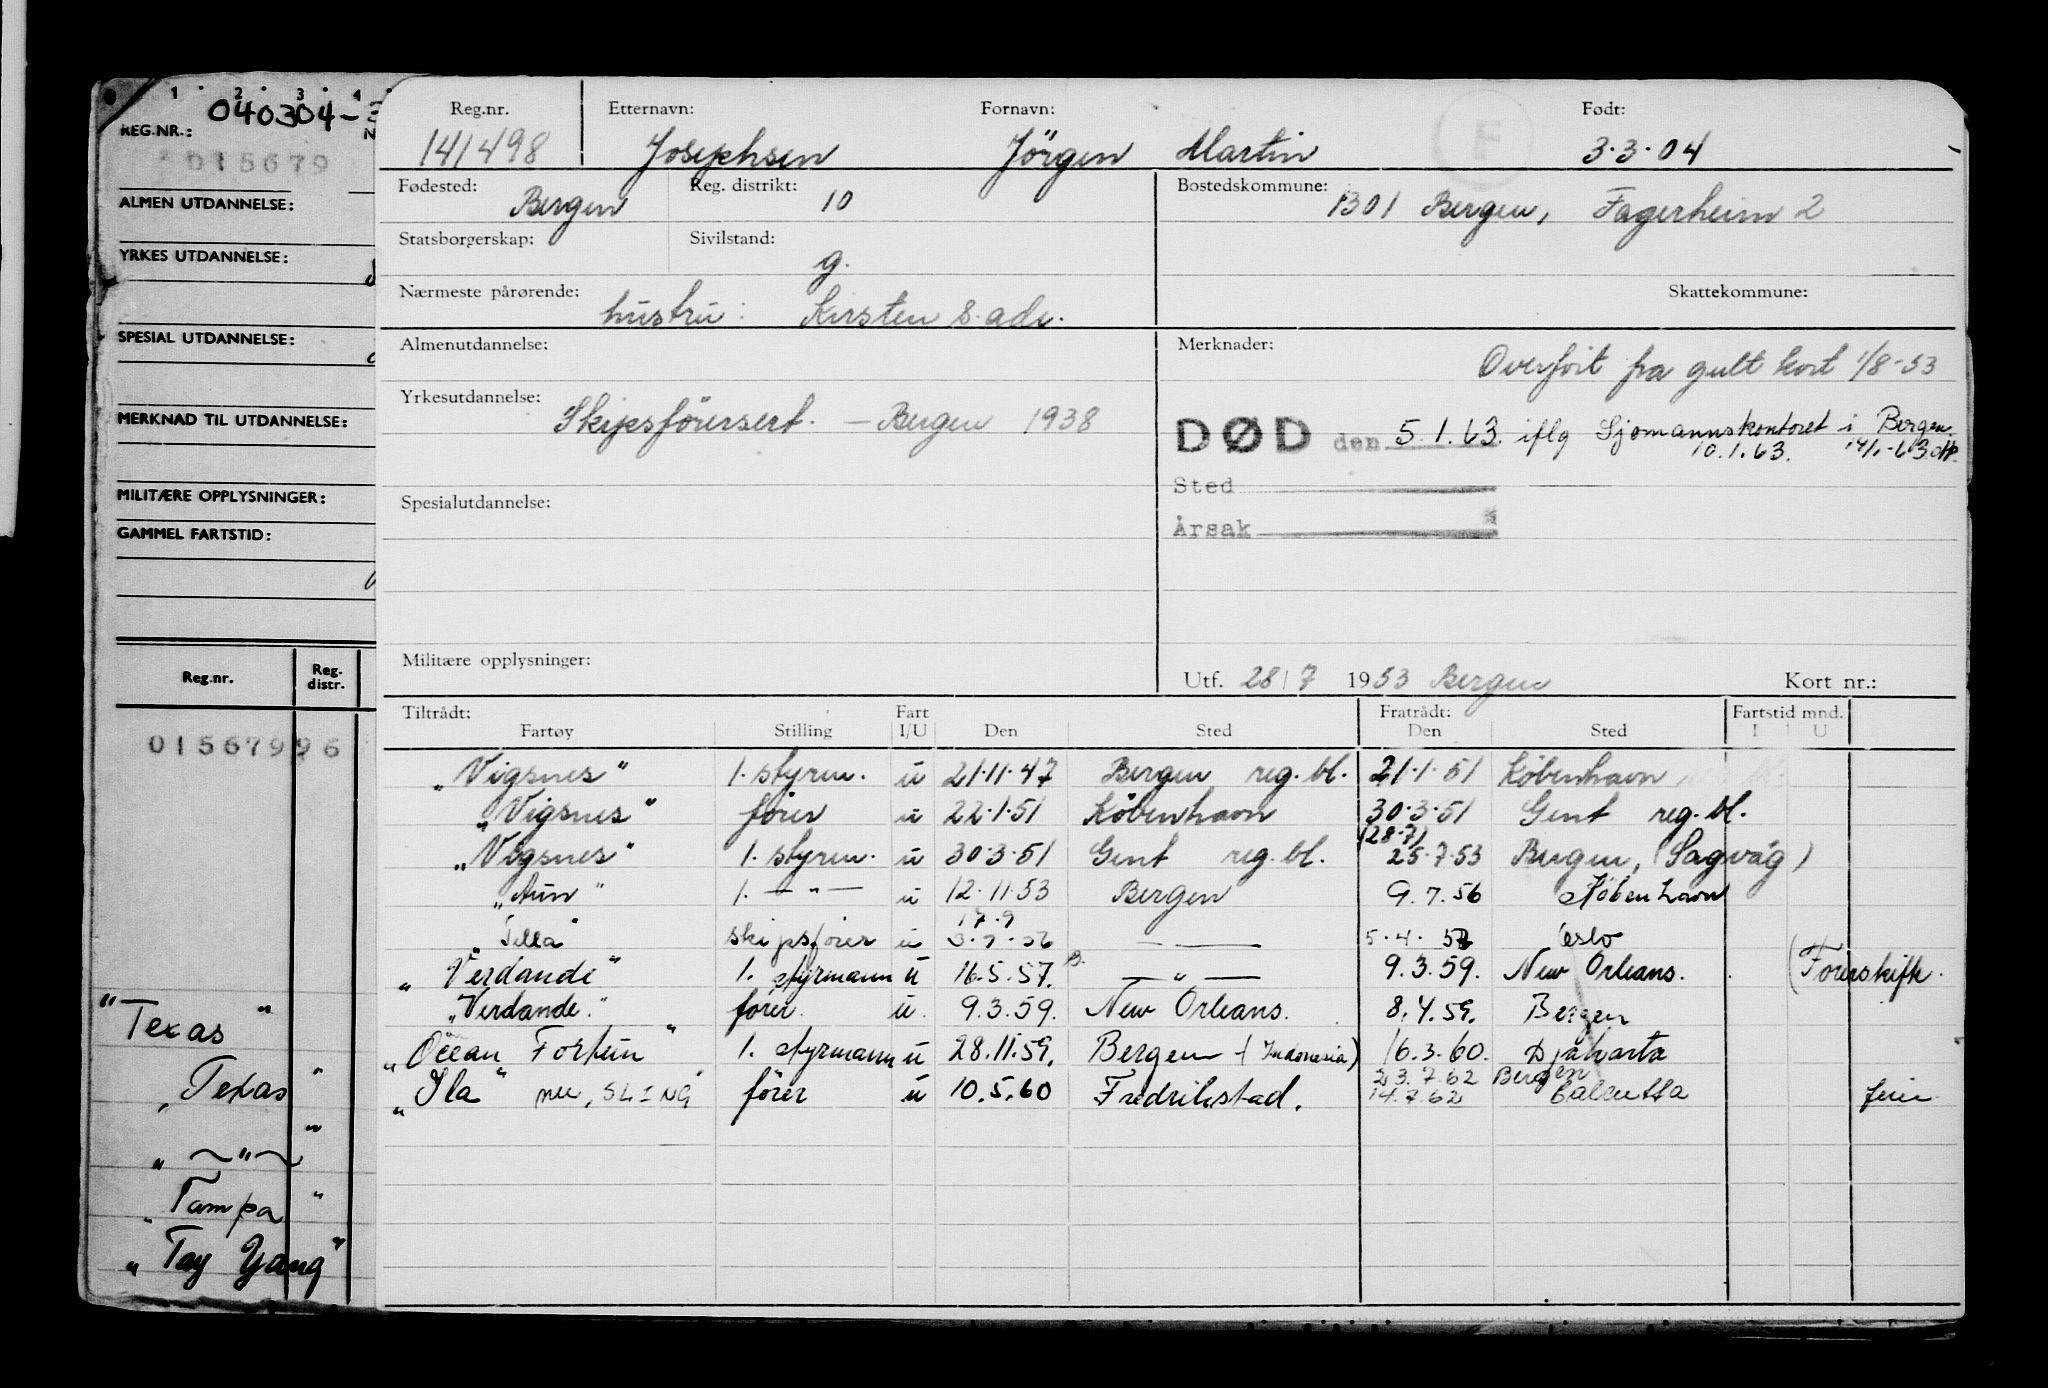 1 · 2 · 3 · 4
REG.NR.: 040304-3
015679
ALMEN UTDANNELSE:
YRKES UTDANNELSE:
SPESIAL UTDANNELSE:
MERKNAD TIL UTDANNELSE:
MILITÆRE OPPLYSNINGER:
GAMMEL FARTSTID:
Reg.nr. Reg. distr.
01567996
"Texas"
"Texas"
" — " — "
"Tampa"
"Tay Yang"
Reg.nr. Etternavn: Fornavn: Født:
141498 Josephsen Jörgen Martin F 3·3·04
Fødested: Reg. distrikt: Bostedskommune:
Bergen 10 1301 Bergen, Fagerheim 2
Statsborgerskap: Sivilstand:
g.
Nærmeste pårørende: Skattekommune:
hustru: Kirsten s. adr.
Almenutdannelse: Merknader:
Overfört fra gult kort 1/8-53
Yrkesutdannelse:
Skipsförersert. — Bergen 1938
DØD den 5.1.63. iflg Sjømannskontoret i Bergen
10.1.63. 14/1-63
Sted
Årsak
Spesialutdannelse:
Militære opplysninger:
Utf. 28/7 1953 Bergen Kort nr.:
Tiltrådt: Fart Fratrådt: Fartstid mnd.
Fartøy Stilling I/U Den Sted Den Sted I U
"Vigsnes" 1. styrm. u 21·11·47 Bergen reg. bl. 21·1·51 København
"Vigsnes" förer u 22·1·51 København 30·3·51 Gent reg. bl.
(28·7)
"Vigsnes" 1. styrm. u 30·3·51 Gent reg. bl. 25·7·53 Bergen, (Sagvåg)
"Aun" 1. — " — u 12·11·53 Bergen 9.7.56 København
17.9
"Tella" skipsförer u 3·9·56 — — 5·4·57 Oslo
"Verdande" 1. styrmann u 16.5.57. — " — 9.3.59. New Orleans. (Förerskifte.
"Verdande." förer. u. 9.3.59. New Orleans. 8.4.59. Bergen
"Ocean Fortun" 1. styrmann u 28.11.59. Bergen - (Indonesia) 16.3.60. Djakarta
23.7.62 Bergen
"Ila" nu, SLING förer u 10.5.60 Fredrikstad. 14.7.62 Calcutta ferie